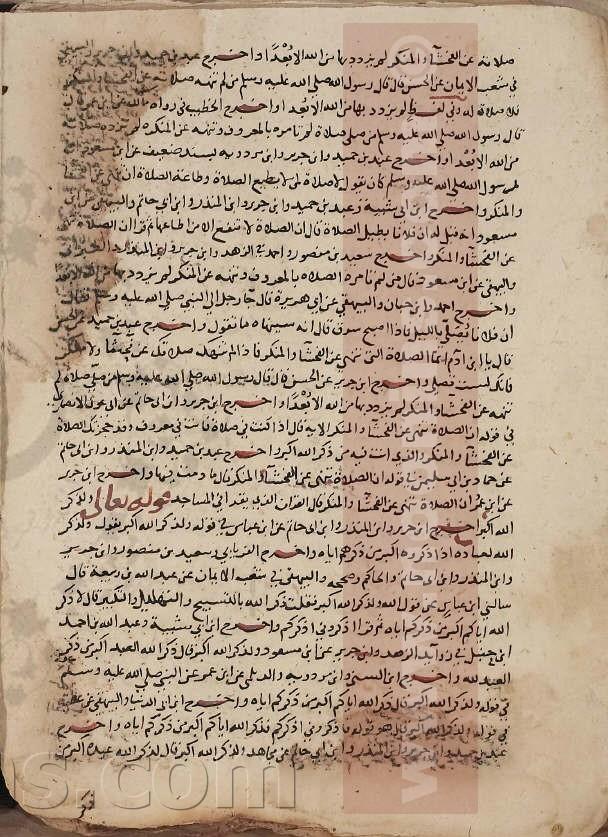 صلاته عن الفحشاء والمنكر لم يزدد بها من الله الا بُعْدًا واخرج عبد بن حميد وابن جرير والبيهقي
في شعب الايمان عن الحسن قال قال رسول الله صلى الله عليه وسلم من لم تنهه صلاته عن الفحشاء والمنكر
فلا صلاة له وفي لفظ لم يزدد بها من الله الا بعدا واخرج الخطيب في رواة مالك عن ابن عمر قال
قال رسول الله صلى الله عليه وسلم من صلى صلاة لم تامره بالمعروف وتنهه عن المنكر لم تزده صلاته
من الله الا بُعْدا واخرج عبد بن حميد وابن جرير وابن مردويه بسند ضعيف عن ابن مسعود
رسول الله صلى الله عليه وسلم كان يقول لا صلاة لمن لا يطيع الصلاة وطاعة الصلاة ان تنهى عن الفحشا
والمنكر واخرج ابن ابي شيبة وعبد بن حميد وابن جرير وابن المنذر وابن ابي حاتم والبيهقي عن ابن
مسعود انه قيل له ان فلانا يطيل الصلاة قال ان الصلاة لا تنفع الا من اطاعها ثم قرا ان الصلاة تنهى
عن الفحشاء والمنكر واخرج سعيد بن منصور واحمد في الزهد وابن جرير وابن المنذر والطبراني
والبيهقي عن ابن مسعود قال من لم تامره الصلاه بالمعروف وتنهه عن المنكر لم يزدد بها من الله الا بعدا
واخرج احمد وابن حبان والبيهقي عن ابي هريرة قال جا رجل الى النبي صلى الله عليه وسلم فقال
ان فلانا يُصَلّي بالليل فاذا اصبح سرق قال انه سينهاه ما تقول واخرج عبد بن حميد عن الحسن
قال يا ابن ادم انما الصلاة التي تنهى عن الفحشا والمنكر فاذا لم تنهك صلاتك عن فحشا ولا منكر
فانك لست تصلي واخرج ابن جرير عن الحسن قال قال رسول الله صلى الله عليه وسلم من صلى صلاة لم
تنهه عن الفحشاء والمنكر لم يزدد بها من الله الا بُعْدًا واخرج ابن جرير وابن ابي حاتم عن ابي عون الانصاري
في قوله ان الصلاة تنهى عن الفحشاء والمنكر الاية قال اذا كنت في صلاة فانت في معروف وقد حجزتك الصلاة
عن الفحشاء والمنكر والذي انت فيه من ذكر الله اكبر واخرج عبد بن حميد وابن المنذر وابن ابي حاتم
عن حماد بن ابي سليمن في قوله ان الصلاة تنهى عن الفحشاء والمنكر قال ما دمت فيها واخرج ابن جرير
عن ابن عمر ان الصلاة تنهى عن الفحشاء والمنكر قال القران الذي يقرا في المساجد قوله تعالى ولذكر
الله اكبر اخرج ابن جرير وابن المنذر وابن ابي حاتم عن ابن عباس في قوله ولذكر الله اكبر يقول ولذكر
الله لعباده اذا ذكروه اكبر من ذكرهم اياه واخرج الفريابي وسعيد بن منصور وابن جرير
وابن المنذر وابن ابي حاتم والحاكم وصححه والبيهقي في شعب الايمان عن عبد الله بن ربيعة قال
سالني ابن عباس عن قول الله ولذكر الله اكبر فقلت ذكر الله بالتسبيح والتهليل والتكبير قال لا ذكر
الله اياكم اكبر من ذكركم اياه ثم قرا اذكروني اذكركم واخرج ابن ابي شيبة وعبد الله بن احمد
ابن حنبل في زوايد الزهد وابن جرير عن ابن مسعود ولذكر الله اكبر قال ذكر الله العبد اكبر من ذكر
العبد لله واخرج ابن السني وابن مردويه والديلمي عن ابن عمر عن النبي صلى الله عليه وسلم
في قوله ولذكر الله اكبر قال ذكر الله اياكم اكبر من ذكركم اياه واخرج ابن ابي الدنيا والبيهقي عن عطية
في قوله ولذكر الله اكبر قال هو قوله فاذكروني اذكركم فذكر الله اياكم اكبر من ذكركم اياه واخرج
عبد بن حميد وابن جرير وابن المنذر وابن ابي حاتم عن مجاهد ولذكر الله اكبر قال لذكر الله عبده اكبر من
ذكر
s.com